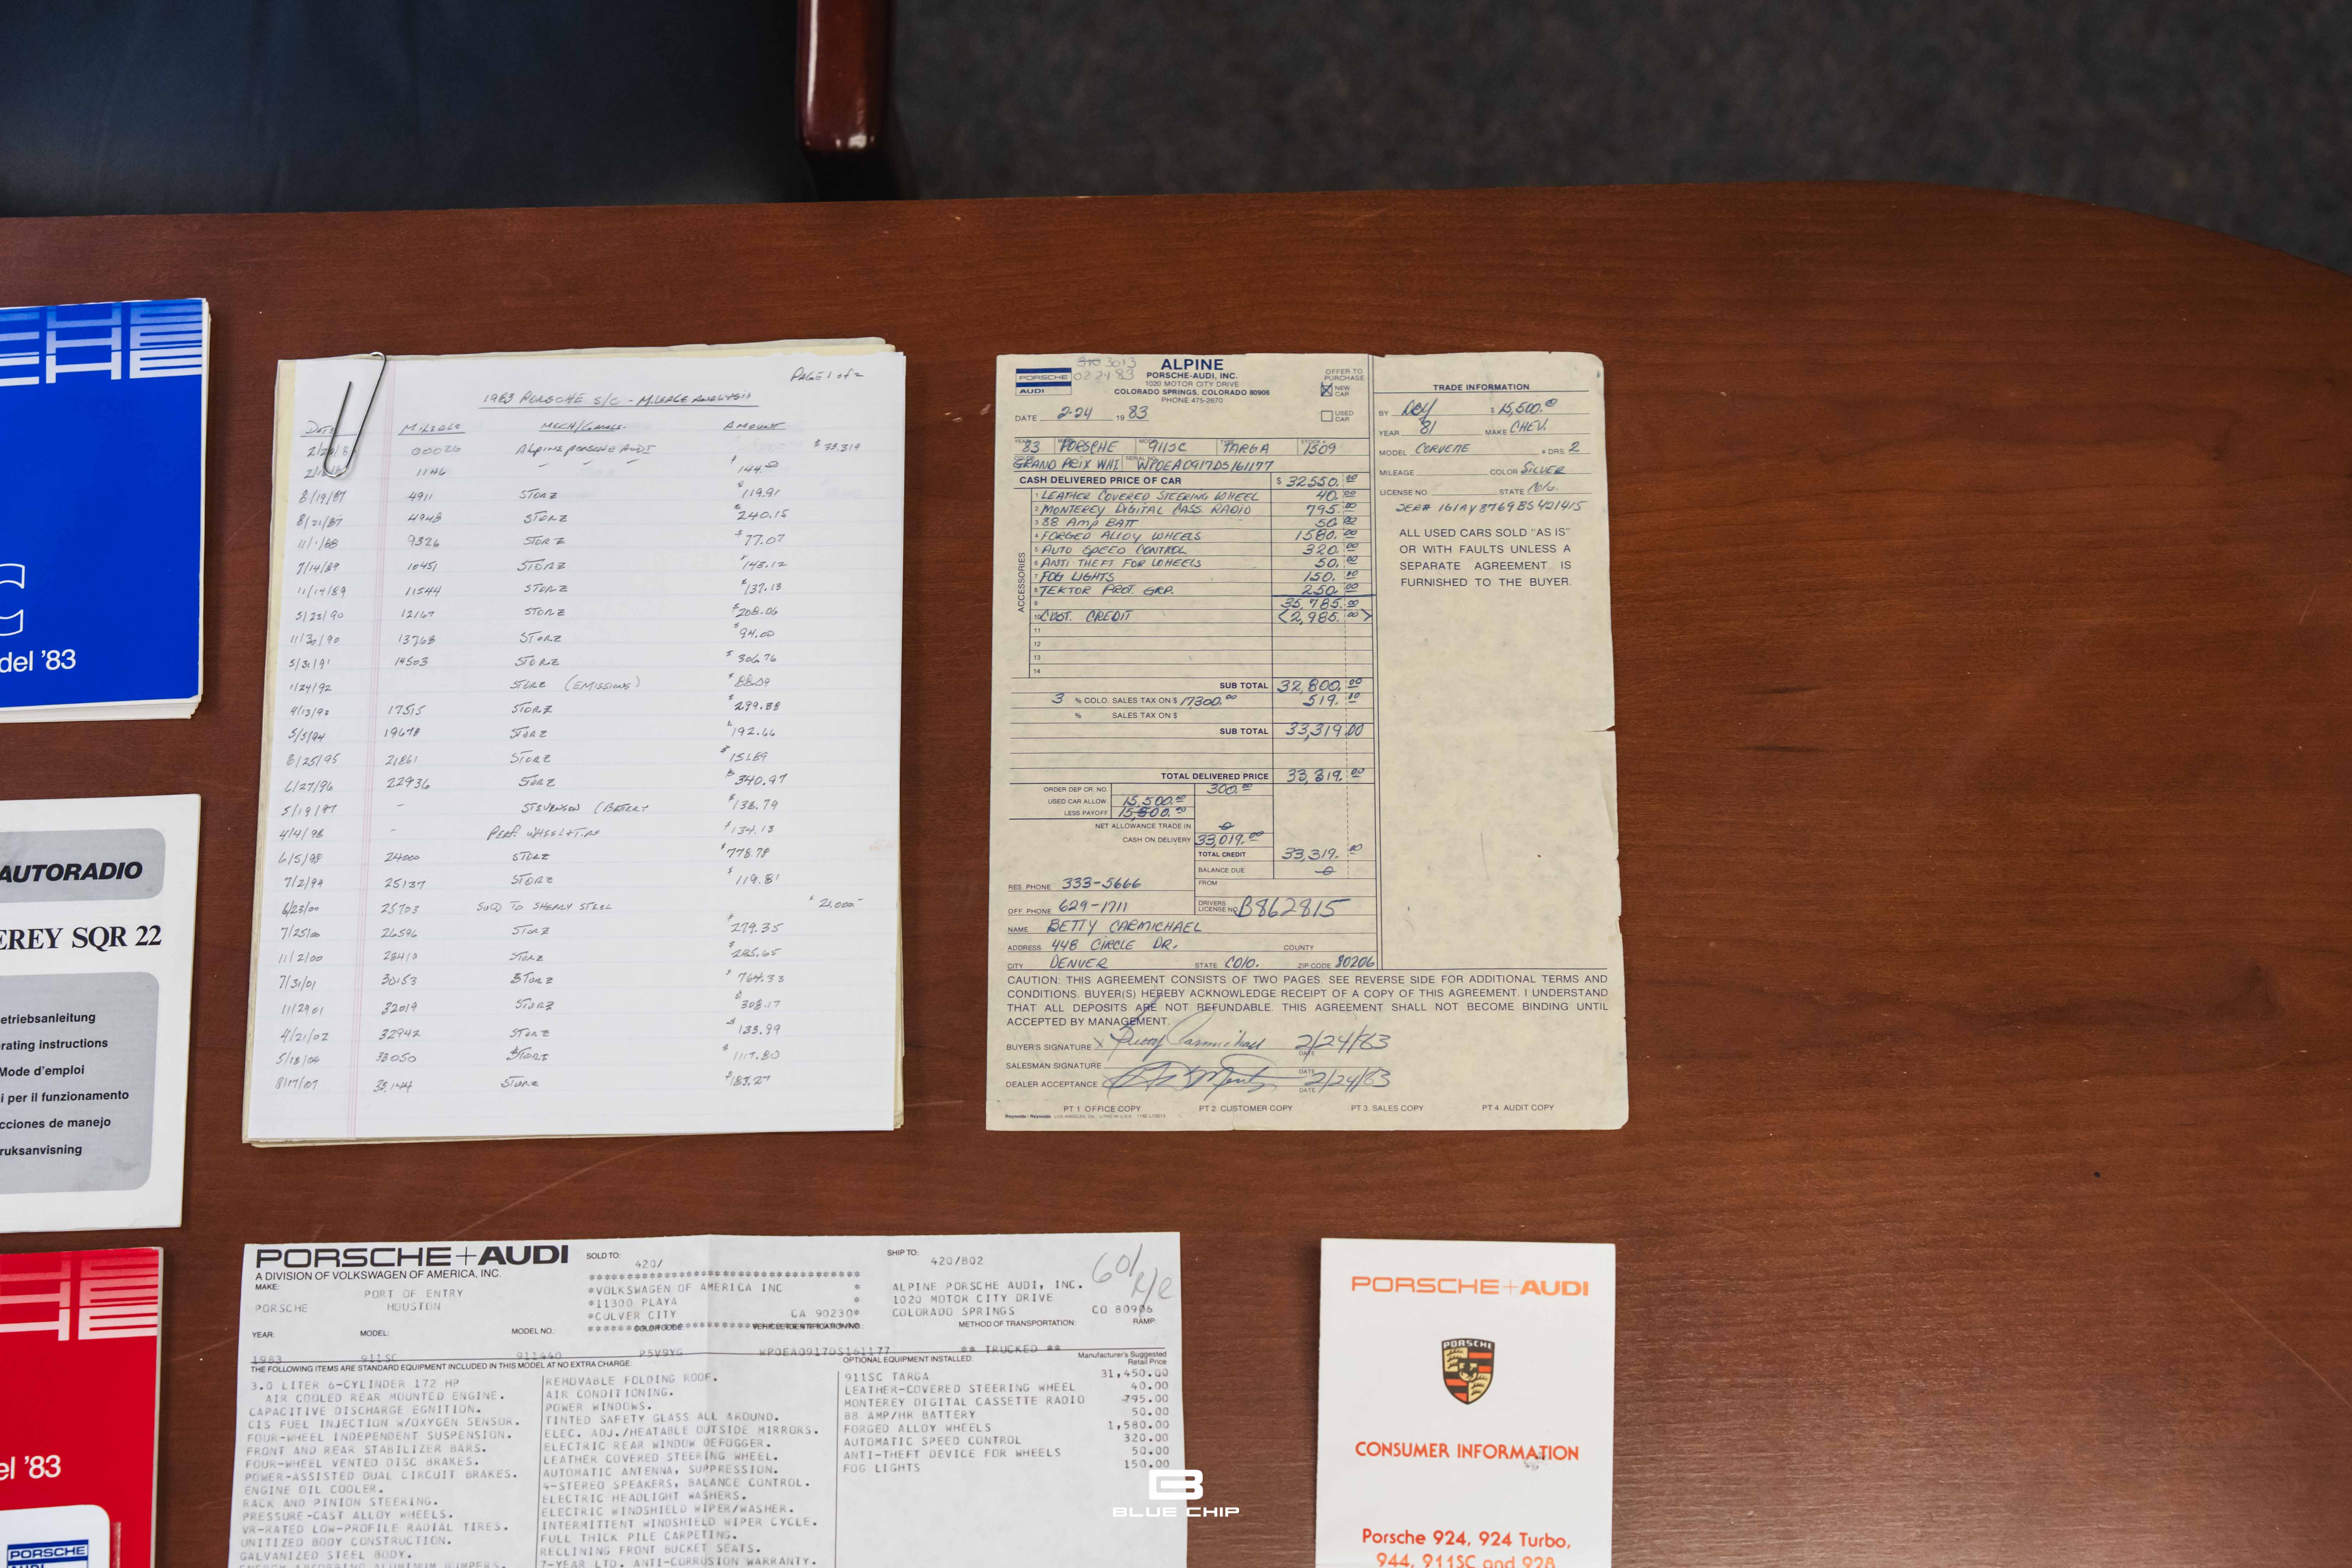 del '83
AUTORADIO
EREY SQR 22
etriebsanleitung
rating instructions
Mode d'emploi
i per il funzionamento
cciones de manejo
ruksanvisning
el '83
PORSCHE
PAGE 1 of 2
1983 PORSCHE S/C - MILEAGE ANALYSIS
DATE MILEAGE MECH/GARAGE AMOUNT
00026 ALPINE PORSCHE AUDI $ 33,319
1146 $ 144.00
8/19/87 4911 STORZ $ 119.91
8/21/87 4948 STORZ $ 240.15
9326 STORZ $ 77.07
7/14/89 10451 STORZ $ 148.12
11/14/89 11544 STORZ $ 137.13
5/23/90 12167 STORZ $ 208.06
11/30/90 13768 STORZ $ 94.00
5/31/91 14503 STORZ $ 306.76
1/24/92 STORZ (EMISSIONS) $ 88.09
17515 STORZ $ 299.88
5/5/94 19678 STORZ $ 192.66
8/25/95 21861 STORZ $ 151.89
6/27/96 22936 STORZ $ 340.97
5/19/97 - STEVENSON (BATTERY $ 138.79
4/4/98 - PERF. WHEEL + TIRE $ 134.13
6/5/98 24000 STORZ $ 778.78
7/2/99 25137 STORZ $ 119.81
6/23/00 25703 SOLD TO SHERRY STEEL $ 21,000-
7/25/00 26596 STORZ $ 279.35
11/2/00 28410 STORZ $ 285.65
7/31/01 30153 STORZ $ 764.33
11/29/01 32019 STORZ $ 308.17
4/21/02 32942 STORZ $ 133.99
33050 STORZ $ 1117.80
8/17/07 33,144 STORZ $ 183.27
3013
02 24 83
PORSCHE
AUDI
ALPINE
PORSCHE-AUDI, INC.
1020 MOTOR CITY DRIVE
COLORADO SPRINGS, COLORADO 80906
PHONE 475-2670
OFFER TO
PURCHASE
NEW
CAR
USED
CAR
DATE 2-24 19 83
YEAR 83 MAKE PORSCHE MODEL 911SC TYPE TARGA STOCK # 1509
COLOR GRAND PRIX WHI SERIAL NO. WPOEA0917DS161177
CASH DELIVERED PRICE OF CAR $ 32550.00
ACCESSORIES
1 LEATHER COVERED STEERING WHEEL 40.00
2 MONTEREY DIGITAL CASS. RADIO 795.00
3 88 AMP BATT 50.00
4 FORGED ALLOY WHEELS 1580.00
5 AUTO SPEED CONTROL 320.00
6 ANTI-THEFT FOR WHEELS 50.00
7 FOG LIGHTS 150.00
8 TEKTOR PROT. GRP. 250.00
9 35,785.00
10 CUST. CREDIT <2,985.00>
11
12
13
14
SUB TOTAL 32,800.00
3 % COLO. SALES TAX ON $ 17300.00 519.00
% SALES TAX ON $
SUB TOTAL 33,319.00
TOTAL DELIVERED PRICE 33,319.00
ORDER DEP CR. NO. 300.00
USED CAR ALLOW. 15,500.00
LESS PAYOFF 15,500.00
NET ALLOWANCE TRADE IN 0
CASH ON DELIVERY 33,019.00
TOTAL CREDIT 33,319.00
BALANCE DUE 0
RES. PHONE 333-5666 FROM
OFF. PHONE 629-1711 DRIVERS LICENSE NO. B862815
NAME BETTY CARMICHAEL
ADDRESS 448 CIRCLE DR. COUNTY
CITY DENVER STATE COLO. ZIP CODE 80206
CAUTION: THIS AGREEMENT CONSISTS OF TWO PAGES. SEE REVERSE SIDE FOR ADDITIONAL TERMS AND
CONDITIONS. BUYER(S) HEREBY ACKNOWLEDGE RECEIPT OF A COPY OF THIS AGREEMENT. I UNDERSTAND
THAT ALL DEPOSITS ARE NOT REFUNDABLE. THIS AGREEMENT SHALL NOT BECOME BINDING UNTIL
ACCEPTED BY MANAGEMENT.
BUYER'S SIGNATURE X Betty Carmichael 2/24/83
DATE
SALESMAN SIGNATURE
DATE
DEALER ACCEPTANCE 2/24/83
DATE
PT 1 OFFICE COPY PT 2 CUSTOMER COPY PT 3 SALES COPY PT 4 AUDIT COPY
TRADE INFORMATION
BY $ 15,500.00
YEAR 81 MAKE CHEV.
MODEL CORVETTE # DRS. 2
MILEAGE COLOR SILVER
LICENSE NO. STATE Colo.
SER# 1G1AY8769BS401415
ALL USED CARS SOLD "AS IS"
OR WITH FAULTS UNLESS A
SEPARATE AGREEMENT IS
FURNISHED TO THE BUYER.
PORSCHE+AUDI
A DIVISION OF VOLKSWAGEN OF AMERICA, INC.
MAKE: PORT OF ENTRY
PORSCHE HOUSTON
SOLD TO: 420/
*VOLKSWAGEN OF AMERICA INC *
*11300 PLAYA *
*CULVER CITY CA 90230*
SHIP TO: 420/802
ALPINE PORSCHE AUDI, INC.
1020 MOTOR CITY DRIVE
COLORADO SPRINGS CO 80906
YEAR: MODEL: MODEL NO.: COLOR CODE: VEHICLE IDENTIFICATION NO. METHOD OF TRANSPORTATION: RAMP:
1983 911SC 911440 P5V9YG WPOEA0917DS161177 ** TRUCKED **
THE FOLLOWING ITEMS ARE STANDARD EQUIPMENT INCLUDED IN THIS MODEL AT NO EXTRA CHARGE:
3.0 LITER 6-CYLINDER 172 HP
AIR COOLED REAR MOUNTED ENGINE.
CAPACITIVE DISCHARGE EGNITION.
CIS FUEL INJECTION W/OXYGEN SENSOR.
FOUR-WHEEL INDEPENDENT SUSPENSION.
FRONT AND REAR STABILIZER BARS.
FOUR-WHEEL VENTED DISC BRAKES.
POWER-ASSISTED DUAL CIRCUIT BRAKES.
ENGINE OIL COOLER.
RACK AND PINION STEERING.
PRESSURE-CAST ALLOY WHEELS.
VR-RATED LOW-PROFILE RADIAL TIRES.
UNITIZED BODY CONSTRUCTION.
GALVANIZED STEEL BODY.
ENERGY ABSORBING ALUMINUM BUMPERS.
REMOVABLE FOLDING ROOF.
AIR CONDITIONING.
POWER WINDOWS.
TINTED SAFETY GLASS ALL AROUND.
ELEC. ADJ./HEATABLE OUTSIDE MIRRORS.
ELECTRIC REAR WINDOW DEFOGGER.
LEATHER COVERED STEERING WHEEL.
AUTOMATIC ANTENNA, SUPPRESSION.
4-STEREO SPEAKERS, BALANCE CONTROL.
ELECTRIC HEADLIGHT WASHERS.
ELECTRIC WINDSHIELD WIPER/WASHER.
INTERMITTENT WINDSHIELD WIPER CYCLE.
FULL THICK PILE CARPETING.
RECLINING FRONT BUCKET SEATS.
7-YEAR LTD. ANTI-CORROSION WARRANTY.
OPTIONAL EQUIPMENT INSTALLED: Manufacturer's Suggested
Retail Price
911SC TARGA 31,450.00
LEATHER-COVERED STEERING WHEEL 40.00
MONTEREY DIGITAL CASSETTE RADIO 795.00
88 AMP/HR BATTERY 50.00
FORGED ALLOY WHEELS 1,580.00
AUTOMATIC SPEED CONTROL 320.00
ANTI-THEFT DEVICE FOR WHEELS 50.00
FOG LIGHTS 150.00
PORSCHE+AUDI
PORSCHE
CONSUMER INFORMATION
Porsche 924, 924 Turbo,
944, 911SC and 928
BLUE CHIP